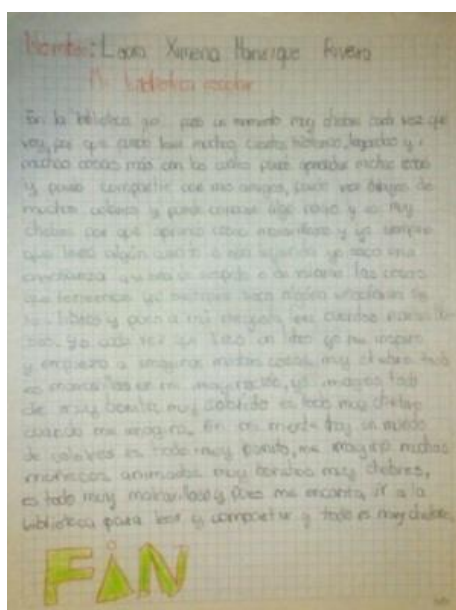 Nombre: Laura Ximena Manrique Rivero
Mi biblioteca escolar
En la biblioteca yo paso un momento muy chebre cada vez que
voy, por que puedo leer muchos cuentos, historias, leyendas y
muchas cosas más con las cuales puedo aprender muchas cosas
y puedo compartir con mis amigos, puedo ver dibujos de
muchos colores y puedo conocer algo nuevo y es muy
chebre por que aprendo cosas maravillosas y yo siempre
que leo algún cuento o una leyenda yo saco una
enseñanza
que tenemos yo siempre saco alguna enseñanza de
los libros y pues a mi me gusta leer cuentos maravillo-
sos. Yo cada vez que leo un libro yo me inspiro
y empiezo a imaginar muchas cosas muy chebre todo
es maravilloso en mi imaginación, yo imagino todo
de muy bonito, muy colorido es todo muy chebre
cuando me imagino. En mi mente hay un mundo
de colores es todo muy bonito, me imagino muchos
muñecos animados muy bonitos muy chebres,
es todo muy maravilloso y pues me encanta ir a la
biblioteca para leer y compartir y todo es muy chebre.
FIN